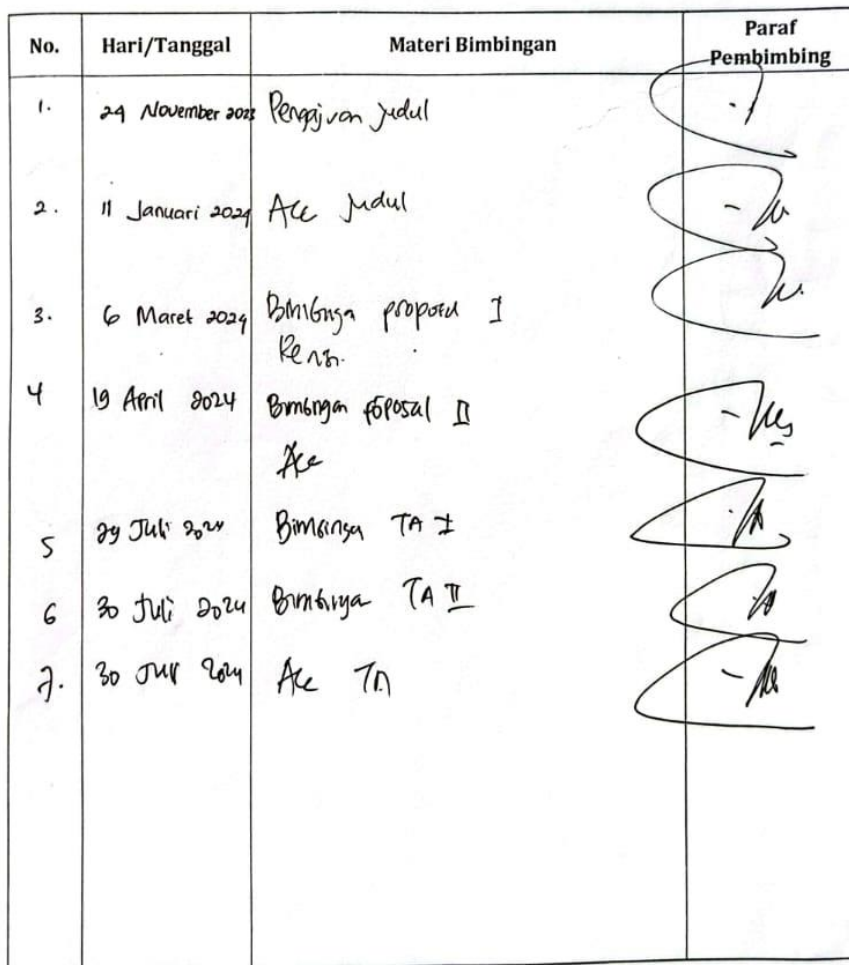 No. Hari/Tanggal Materi Bimbingan Paraf Pembimbing
1. 24 November 2023 Pengajuan Judul
2. 11 Januari 2024 Acc Judul
3. 6 Maret 2024 Bimbingan proposal I
Revisi.
4 19 April 2024 Bimbingan proposal II
Acc
5 29 Juli 2024 Bimbingan TA I
6 30 Juli 2024 Bimbingan TA II
7. 30 Juli 2024 Acc TA